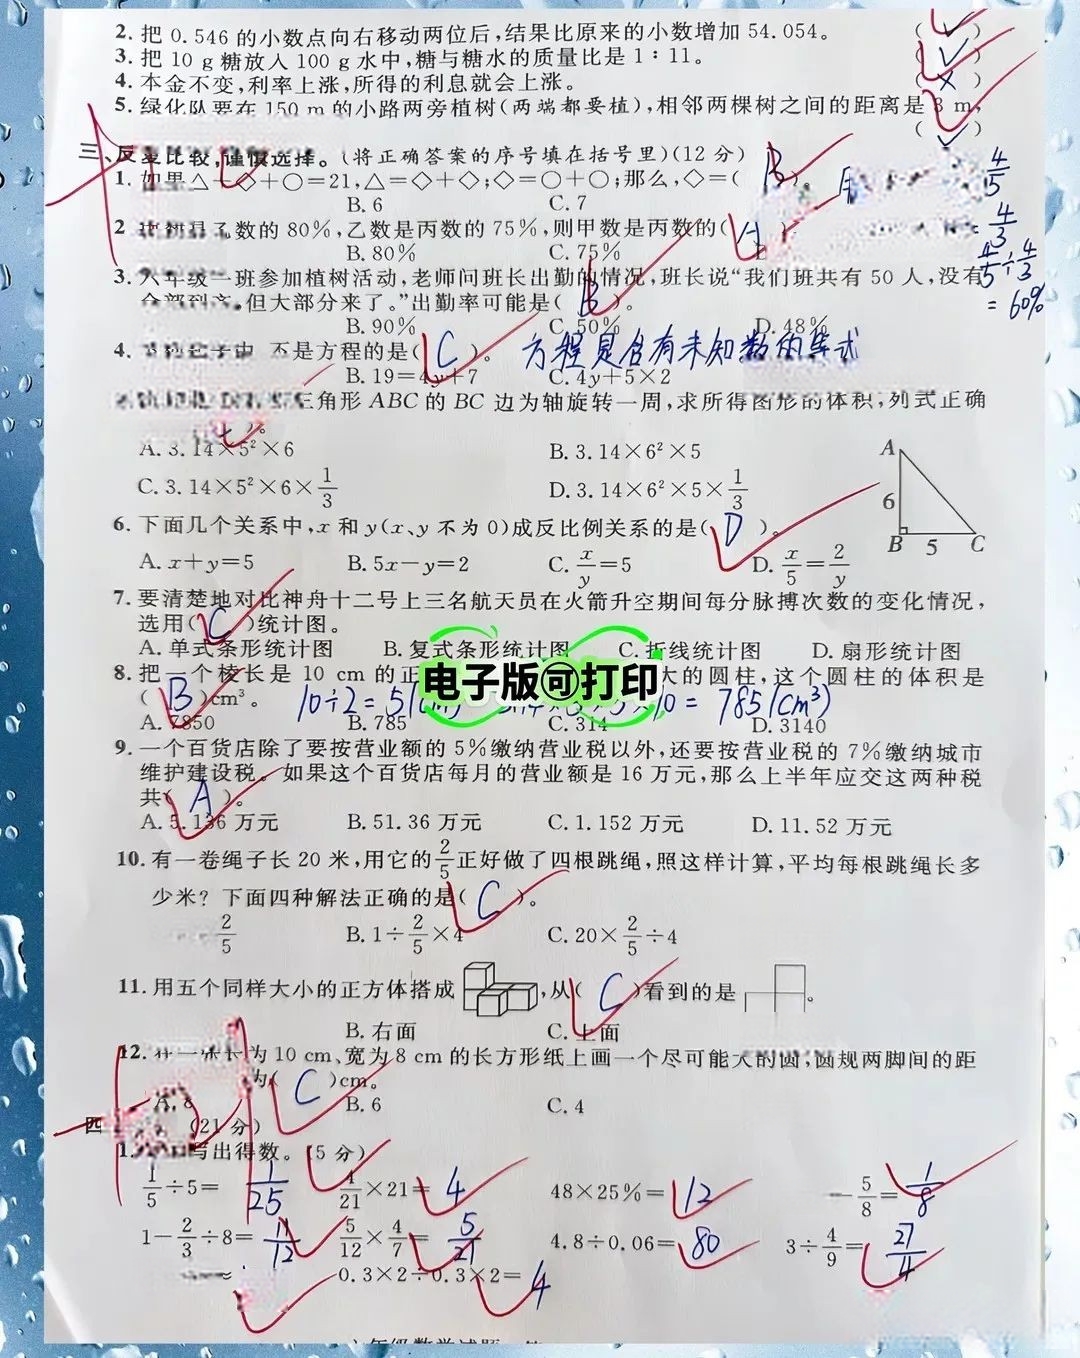 2. 把 0.546 的小数点向右移动两位后,结果比原来的小数增加 54.054。 ( √ )
3. 把 10 g 糖放入 100 g 水中,糖与糖水的质量比是 1∶11。 ( √ )
4. 本金不变,利率上涨,所得的利息就会上涨。 ( × )
5. 绿化队要在 150 m 的小路两旁植树(两端都要植),相邻两棵树之间的距离是 3 m,
( √ )
三、反复比较,谨慎选择。(将正确答案的序号填在括号里)(12 分)
1. 如果△+◇+○=21,△=◇+◇;◇=○+○;那么,◇=( B )。
B. 6 C. 7
4/5
2 乙数的 80%,乙数是丙数的 75%,则甲数是丙数的( A )
4/3
B. 80% C. 75%
4/5÷4/3
=60%
3. 六年级一班参加植树活动,老师问班长出勤的情况,班长说“我们班共有 50 人,没有
全部到齐,但大部分来了。”出勤率可能是( B )。
B. 90% C. 50% D. 48%
4. 不是方程的是( C )。 方程是含有未知数的等式
B. 19=4y+7 C. 4y+5×2
三角形 ABC 的 BC 边为轴旋转一周,求所得图形的体积,列式正确
)。
A. 3.14×5²×6 B. 3.14×6²×5
C. 3.14×5²×6×1/3 D. 3.14×6²×5×1/3
A
6
B 5 C
6. 下面几个关系中,x 和 y(x、y 不为 0)成反比例关系的是( D )。
A. x+y=5 B. 5x−y=2 C. x/y=5 D. x/5=2/y
7. 要清楚地对比神舟十二号上三名航天员在火箭升空期间每分脉搏次数的变化情况,
选用( C )统计图。
A. 单式条形统计图 B. 复式条形统计图 C. 折线统计图 D. 扇形统计图
8. 把一个棱长是 10 cm 的正 大的圆柱,这个圆柱的体积是
电子版可打印
( B )cm³。 10÷2=5(cm) ×10=785(cm³)
A. 7850 B. 785 C. 314 D. 3140
9. 一个百货店除了要按营业额的 5%缴纳营业税以外,还要按营业税的 7%缴纳城市
维护建设税。如果这个百货店每月的营业额是 16 万元,那么上半年应交这两种税
共( A )。
A. 5.136 万元 B. 51.36 万元 C. 1.152 万元 D. 11.52 万元
10. 有一卷绳子长 20 米,用它的2/5正好做了四根跳绳,照这样计算,平均每根跳绳长多
少米? 下面四种解法正确的是( C )。
2/5 B. 1÷2/5×4 C. 20×2/5÷4
11. 用五个同样大小的正方体搭成 ,从( C )看到的是 。
B. 右面 C. 上面
12. 在一张长为 10 cm、宽为 8 cm 的长方形纸上画一个尽可能大的圆,圆规两脚间的距
为( C )cm。
A. 8 B. 6 C. 4
四 (21 分)
1. 写出得数。(5 分)
1/5÷5=1/25 4/21×21=4 48×25%=12 −5/8=1/8
1−2/3÷8=11/12 5/12×4/7=5/21 4.8÷0.06=80 3÷4/9=27/4
0.3×2÷0.3×2=4